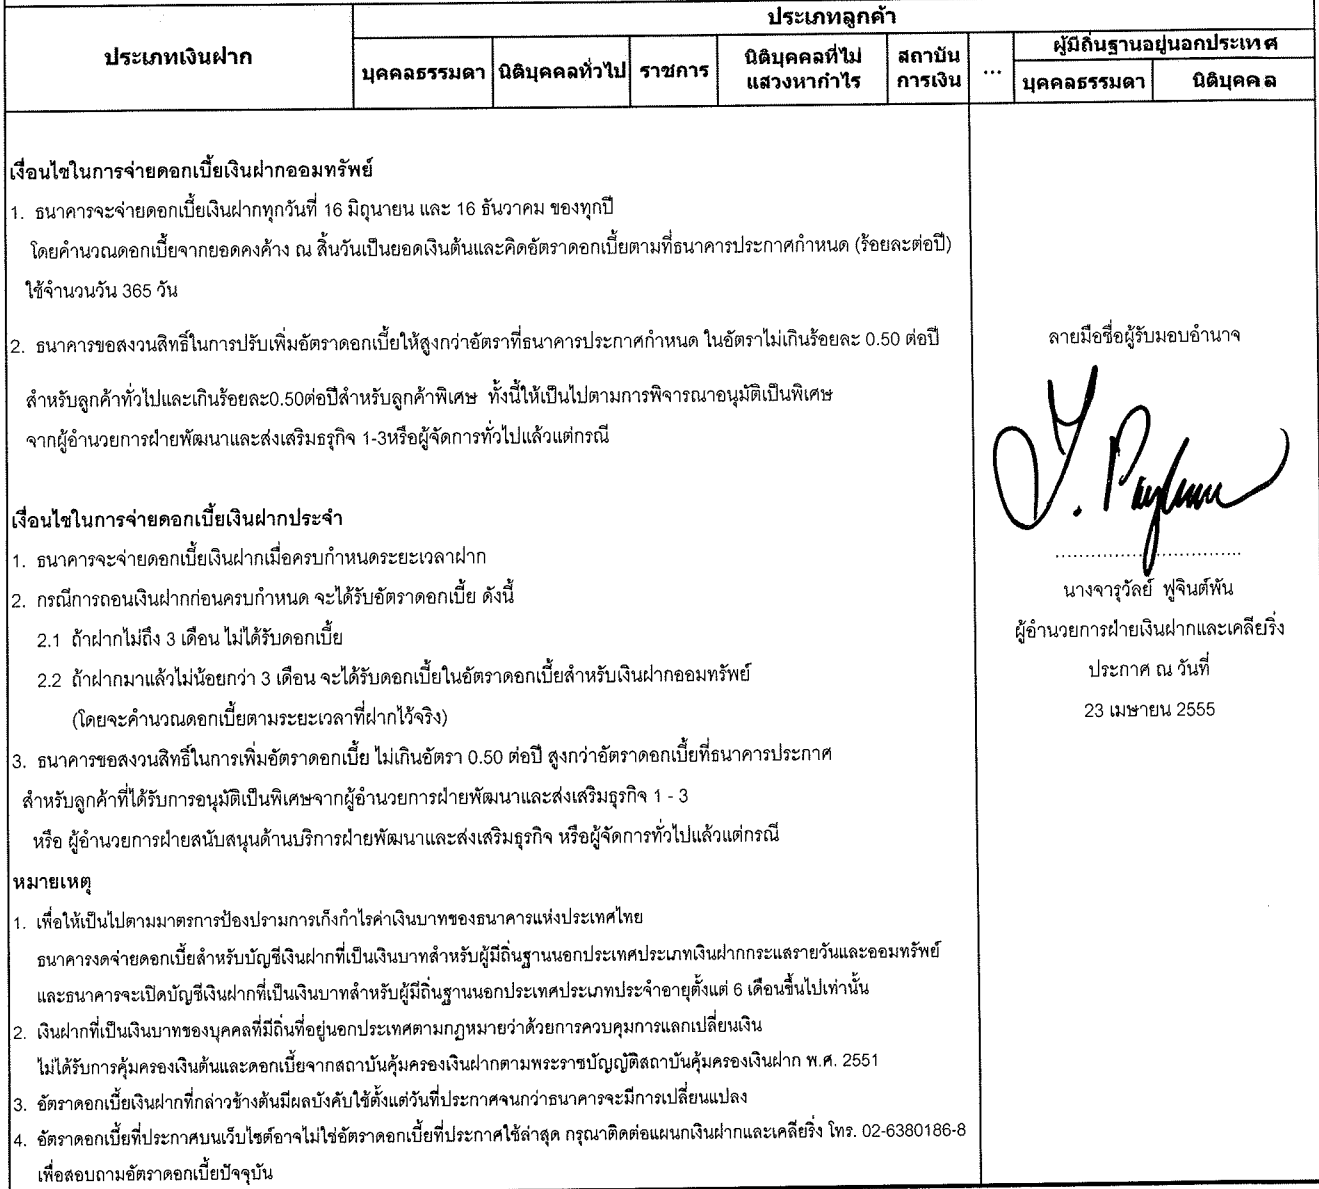 ประเภทเงินฝาก
ประเภทลูกค้า
บุคคลธรรมดา
นิติบุคคลทั่วไป
ราชการ
นิติบุคคลที่ไม่
แสวงหากำไร
สถาบัน
การเงิน
...
ผู้มีถิ่นฐานอยู่นอกประเทศ
บุคคลธรรมดา
นิติบุคคล
เงื่อนไขในการจ่ายดอกเบี้ยเงินฝากออมทรัพย์
1. ธนาคารจะจ่ายดอกเบี้ยเงินฝากทุกวันที่ 16 มิถุนายน และ 16 ธันวาคม ของทุกปี
โดยคำนวณดอกเบี้ยจากยอดคงค้าง ณ สิ้นวันเป็นยอดเงินต้นและคิดอัตราดอกเบี้ยตามที่ธนาคารประกาศกำหนด (ร้อยละต่อปี)
ใช้จำนวนวัน 365 วัน
2. ธนาคารขอสงวนสิทธิ์ในการปรับเพิ่มอัตราดอกเบี้ยให้สูงกว่าอัตราที่ธนาคารประกาศกำหนด ในอัตราไม่เกินร้อยละ 0.50 ต่อปี
สำหรับลูกค้าทั่วไปและเกินร้อยละ0.50ต่อปีสำหรับลูกค้าพิเศษ ทั้งนี้ให้เป็นไปตามการพิจารณาอนุมัติเป็นพิเศษ
จากผู้อำนวยการฝ่ายพัฒนาและส่งเสริมธรุกิจ 1-3หรือผู้จัดการทั่วไปแล้วแต่กรณี
เงื่อนไขในการจ่ายดอกเบี้ยเงินฝากประจำ
1. ธนาคารจะจ่ายดอกเบี้ยเงินฝากเมื่อครบกำหนดระยะเวลาฝาก
2. กรณีการถอนเงินฝากก่อนครบกำหนด จะได้รับอัตราดอกเบี้ย ดังนี้
2.1 ถ้าฝากไม่ถึง 3 เดือน ไม่ได้รับดอกเบี้ย
2.2 ถ้าฝากมาแล้วไม่น้อยกว่า 3 เดือน จะได้รับดอกเบี้ยในอัตราดอกเบี้ยสำหรับเงินฝากออมทรัพย์
(โดยจะคำนวณดอกเบี้ยตามระยะเวลาที่ฝากไว้จริง)
3. ธนาคารขอสงวนสิทธิ์ในการเพิ่มอัตราดอกเบี้ย ไม่เกินอัตรา 0.50 ต่อปี สูงกว่าอัตราดอกเบี้ยที่ธนาคารประกาศ
สำหรับลูกค้าที่ได้รับการอนุมัติเป็นพิเศษจากผู้อำนวยการฝ่ายพัฒนาและส่งเสริมธุรกิจ 1 - 3
หรือ ผู้อำนวยการฝ่ายสนับสนุนด้านบริการฝ่ายพัฒนาและส่งเสริมธุรกิจ หรือผู้จัดการทั่วไปแล้วแต่กรณี
หมายเหตุ
1. เพื่อให้เป็นไปตามมาตรการป้องปรามการเก็งกำไรค่าเงินบาทของธนาคารแห่งประเทศไทย
ธนาคารงดจ่ายดอกเบี้ยสำหรับบัญชีเงินฝากที่เป็นเงินบาทสำหรับผู้มีถิ่นฐานนอกประเทศประเภทเงินฝากกระแสรายวันและออมทรัพย์
และธนาคารจะเปิดบัญชีเงินฝากที่เป็นเงินบาทสำหรับผู้มีถิ่นฐานนอกประเทศประเภทประจำอายุตั้งแต่ 6 เดือนขึ้นไปเท่านั้น
2. เงินฝากที่เป็นเงินบาทของบุคคลที่มีถิ่นที่อยู่นอกประเทศตามกฎหมายว่าด้วยการควบคุมการแลกเปลี่ยนเงิน
ไม่ได้รับการคุ้มครองเงินต้นและดอกเบี้ยจากสถาบันคุ้มครองเงินฝากตามพระราชบัญญัติสถาบันคุ้มครองเงินฝาก พ.ศ. 2551
3. อัตราดอกเบี้ยเงินฝากที่กล่าวข้างต้นมีผลบังคับใช้ตั้งแต่วันที่ประกาศจนกว่าธนาคารจะมีการเปลี่ยนแปลง
4. อัตราดอกเบี้ยที่ประกาศบนเว็บไซต์อาจไม่ใช่อัตราดอกเบี้ยที่ประกาศใช้ล่าสุด กรุณาติดต่อแผนกเงินฝากและเคลียริ่ง โทร. 02-6380186-8
เพื่อสอบถามอัตราดอกเบี้ยปัจจุบัน
ลายมือชื่อผู้รับมอบอำนาจ
นางจารุวัลย์ ฟูจินต์พัน
ผู้อำนวยการฝ่ายเงินฝากและเคลียริ่ง
ประกาศ ณ วันที่
23 เมษายน 2555